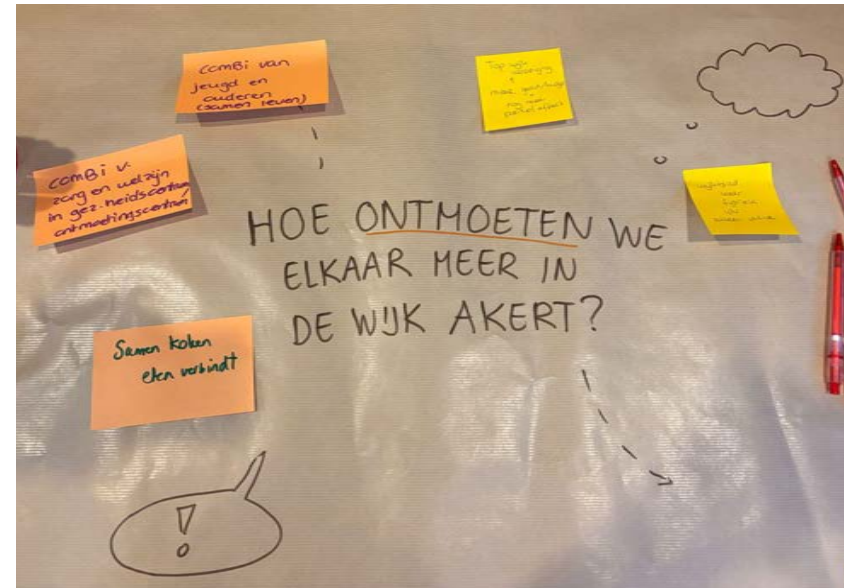 comBi van
jeugd en
ouderen
(samen leven)
comBi v.
zorg en welzijn
in gez.heidscentrum/
ontmoetingscentrum
HOE ONTMOETEN WE
ELKAAR MEER IN
DE WIJK AKERT?
Samen koken
eten verbindt
!